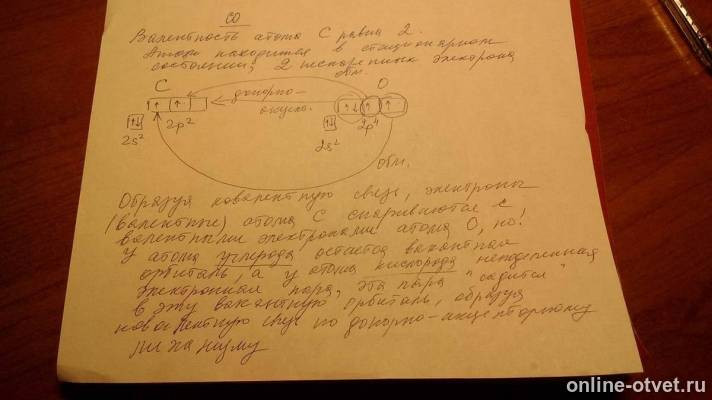 CO
Валентность атома C равна 2.
Атом находится в стационарном
состоянии, 2 неспаренных электрона
обм.
C O
донорно-
акцепт.
↑ ↑ ↑↓ ↑ ↑
2p² 2p⁴
↑↓ ↑↓
2s² 2s²
обм.
Образуя ковалентную связь, электроны
(валентные) атома C спариваются с
валентными электронами атома O, но!
У атома углерода остается вакантная
орбиталь, а у атома кислорода неподеленная
электронная пара, эта пара "садится"
в эту вакантную орбиталь, образуя
ковалентную связь по донорно-акцепторному
механизму
online-otvet.ru